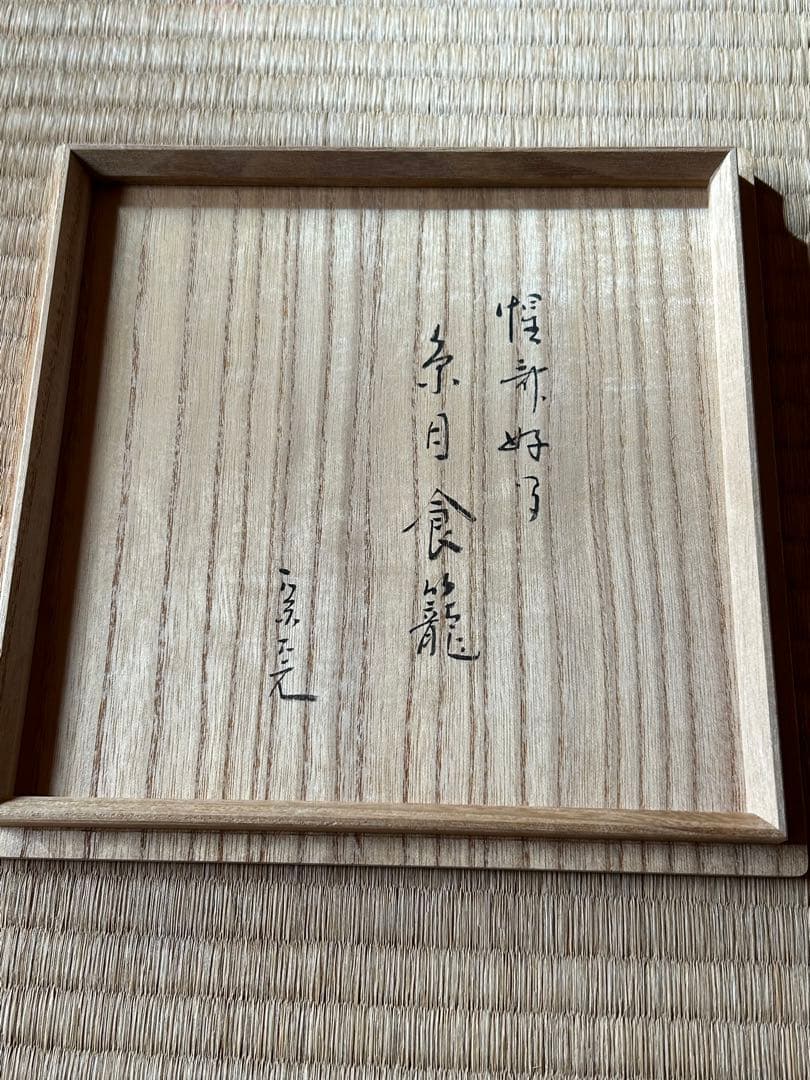 惺斎好写
糸目食籠